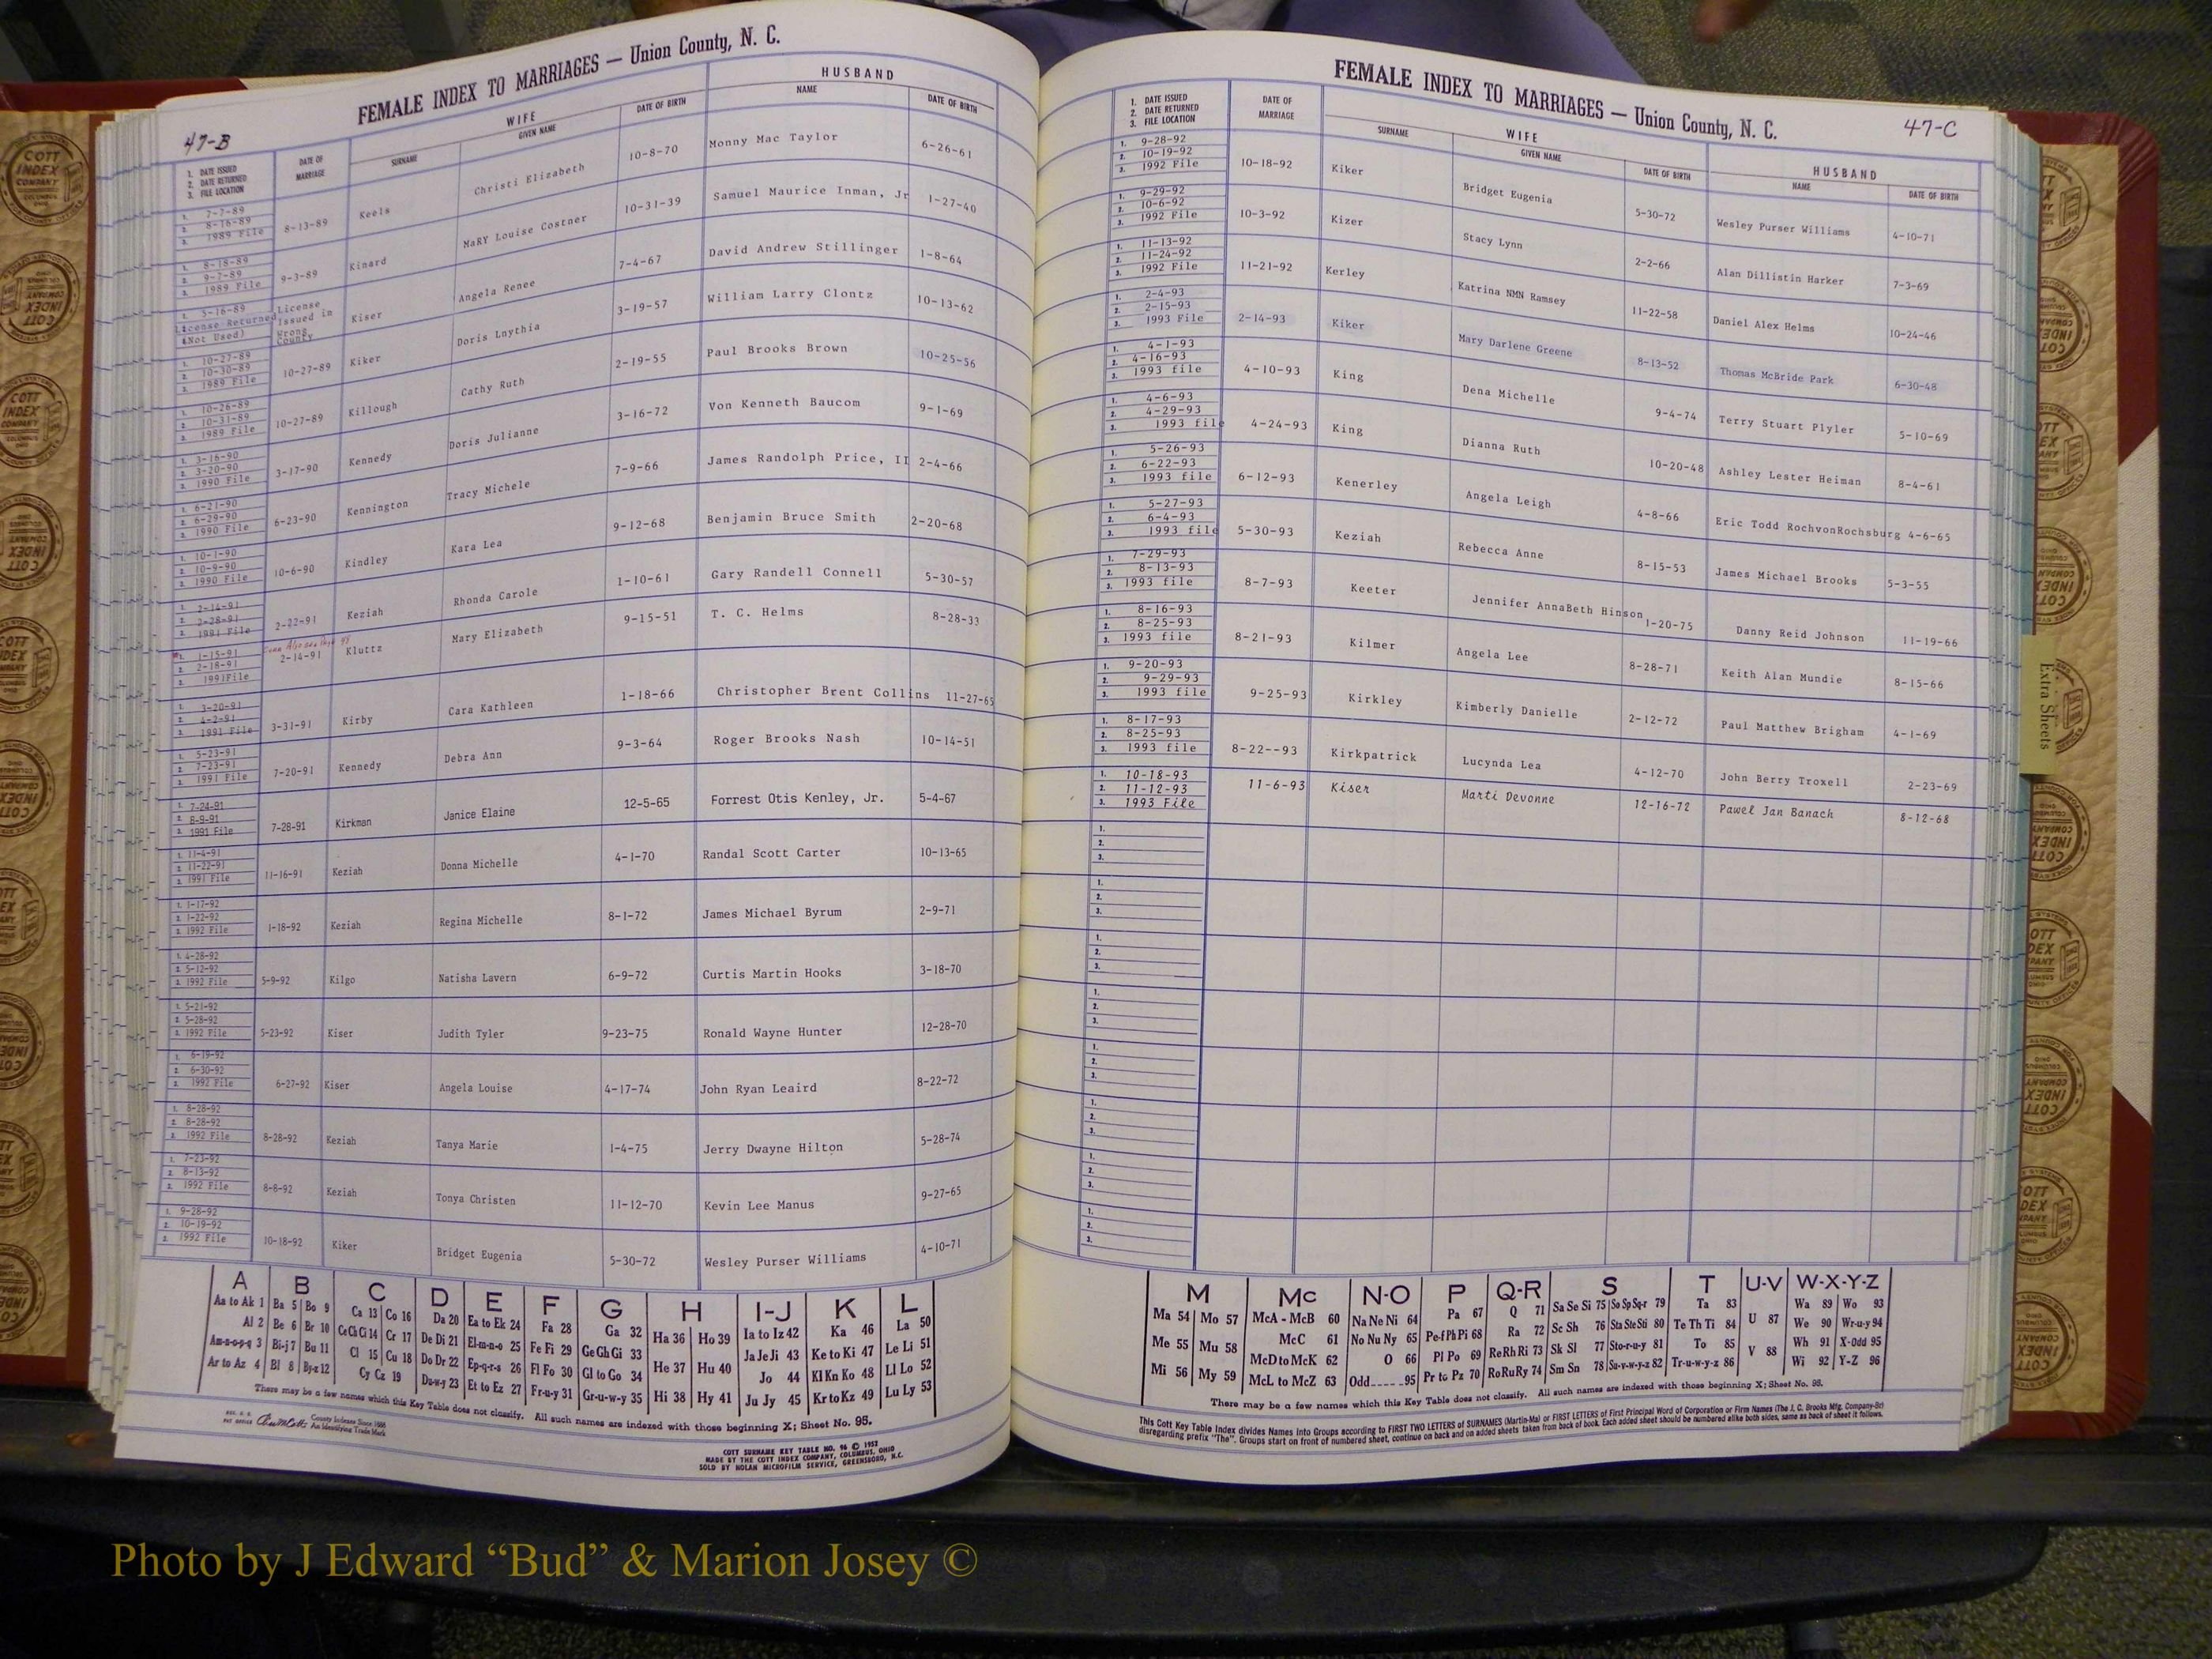 47-B
FEMALE INDEX TO MARRIAGES — Union County, N. C.
1. DATE ISSUED 2. DATE RETURNED 3. FILE LOCATION
DATE OF MARRIAGE
WIFE
SURNAME GIVEN NAME DATE OF BIRTH
HUSBAND
NAME DATE OF BIRTH
1. 7-7-89 2. 8-16-89 3. 1989 File 8-13-89 Keels Christi Elizabeth 10-8-70 Monny Mac Taylor 6-26-61
1. 8-18-89 2. 9-7-89 3. 1989 File 9-3-89 Kinard MaRY Louise Costner 10-31-39 Samuel Maurice Inman, Jr 1-27-40
1. 5-16-89 License Returned (Not Used) License Issued in Wrong County Kiser Angela Renee 7-4-67 David Andrew Stillinger 1-8-64
1. 10-27-89 2. 10-30-89 3. 1989 File 10-27-89 Kiker Doris Lnythia 3-19-57 William Larry Clontz 10-13-62
1. 10-26-89 2. 10-31-89 3. 1989 File 10-27-89 Killough Cathy Ruth 2-19-55 Paul Brooks Brown 10-25-56
1. 3-16-90 2. 3-20-90 3. 1990 File 3-17-90 Kennedy Doris Julianne 3-16-72 Von Kenneth Baucom 9-1-69
1. 6-21-90 2. 6-29-90 3. 1990 File 6-23-90 Kennington Tracy Michele 7-9-66 James Randolph Price, II 2-4-66
1. 10-1-90 2. 10-9-90 3. 1990 File 10-6-90 Kindley Kara Lea 9-12-68 Benjamin Bruce Smith 2-20-68
1. 2-14-91 2. 2-28-91 3. 1991 File 2-22-91 Keziah Rhonda Carole 1-10-61 Gary Randell Connell 5-30-57
1. 1-15-91 2. 2-18-91 3. 1991File 2-14-91 Kluttz Mary Elizabeth 9-15-51 T. C. Helms 8-28-33
1. 3-20-91 2. 4-2-91 3. 1991 File 3-31-91 Kirby Cara Kathleen 1-18-66 Christopher Brent Collins 11-27-65
1. 5-23-91 2. 7-23-91 3. 1991 File 7-20-91 Kennedy Debra Ann 9-3-64 Roger Brooks Nash 10-14-51
1. 7-24-91 2. 8-9-91 3. 1991 File 7-28-91 Kirkman Janice Elaine 12-5-65 Forrest Otis Kenley, Jr. 5-4-67
1. 11-4-91 2. 11-22-91 3. 1991 File 11-16-91 Keziah Donna Michelle 4-1-70 Randal Scott Carter 10-13-65
1. 1-17-92 2. 1-22-92 3. 1992 File 1-18-92 Keziah Regina Michelle 8-1-72 James Michael Byrum 2-9-71
1. 4-28-92 2. 5-12-92 3. 1992 File 5-9-92 Kilgo Natisha Lavern 6-9-72 Curtis Martin Hooks 3-18-70
1. 5-21-92 2. 5-28-92 3. 1992 File 5-23-92 Kiser Judith Tyler 9-23-75 Ronald Wayne Hunter 12-28-70
1. 6-19-92 2. 6-30-92 3. 1992 File 6-27-92 Kiser Angela Louise 4-17-74 John Ryan Leaird 8-22-72
1. 8-28-92 2. 8-28-92 3. 1992 File 8-28-92 Keziah Tanya Marie 1-4-75 Jerry Dwayne Hilton 5-28-74
1. 7-23-92 2. 8-13-92 3. 1992 File 8-8-92 Keziah Tonya Christen 11-12-70 Kevin Lee Manus 9-27-65
1. 9-28-92 2. 10-19-92 3. 1992 File 10-18-92 Kiker Bridget Eugenia 5-30-72 Wesley Purser Williams 4-10-71
A B C D E F G H I-J K L
Aa to Ak 1 Ba 5 Bo 9 Ca 13 Co 16 Da 20 Ea to Ek 24 Fa 28 Ga 32 Ha 36 Ho 39 Ia to Iz 42 Ka 46 La 50
Al 2 Be 6 Br 10 Ce Ch Ci 14 Cr 17 De Di 21 El-m-n-o 25 Fe Fi 29 Ge Gh Gi 33 Ja Je Ji 43 Ke to Ki 47 Le Li 51
Am-n-o-p-q 3 Bi-j 7 Bu 11 Cl 15 Cu 18 Do Dr 22 Ep-q-r-s 26 Fl Fo 30 Gl to Go 34 He 37 Hu 40 Jo 44 Kl Kn Ko 48 Ll Lo 52
Ar to Az 4 Bl 8 By-z 12 Cy Cz 19 Du-w-y 23 Et to Ez 27 Fr-u-y 31 Gr-u-w-y 35 Hi 38 Hy 41 Ju Jy 45 Kr to Kz 49 Lu Ly 53
There may be a few names which this Key Table does not classify. All such names are indexed with those beginning X; Sheet No. 95.
County Indexes Since 1888
An Identifying Trade Mark
COTT SURNAME KEY TABLE NO. 96 © 1952
MADE BY THE COTT INDEX COMPANY, COLUMBUS, OHIO
SOLD BY NOLAN MICROFILM SERVICE, GREENSBORO, N.C.
FEMALE INDEX TO MARRIAGES — Union County, N. C.
47-C
1. DATE ISSUED 2. DATE RETURNED 3. FILE LOCATION
DATE OF MARRIAGE
WIFE
SURNAME GIVEN NAME DATE OF BIRTH
HUSBAND
NAME DATE OF BIRTH
1. 9-28-92 2. 10-19-92 3. 1992 File 10-18-92 Kiker Bridget Eugenia 5-30-72 Wesley Purser Williams 4-10-71
1. 9-29-92 2. 10-6-92 3. 1992 File 10-3-92 Kizer Stacy Lynn 2-2-66 Alan Dillistin Harker 7-3-69
1. 11-13-92 2. 11-24-92 3. 1992 File 11-21-92 Kerley Katrina NMN Ramsey 11-22-58 Daniel Alex Helms 10-24-46
1. 2-4-93 2. 2-15-93 3. 1993 File 2-14-93 Kiker Mary Darlene Greene 8-13-52 Thomas McBride Park 6-30-48
1. 4-1-93 2. 4-16-93 3. 1993 file 4-10-93 King Dena Michelle 9-4-74 Terry Stuart Plyler 5-10-69
1. 4-6-93 2. 4-29-93 3. 1993 file 4-24-93 King Dianna Ruth 10-20-48 Ashley Lester Heiman 8-4-61
1. 5-26-93 2. 6-22-93 3. 1993 file 6-12-93 Kenerley Angela Leigh 4-8-66 Eric Todd RochvonRochsburg 4-6-65
1. 5-27-93 2. 6-4-93 3. 1993 file 5-30-93 Keziah Rebecca Anne 8-15-53 James Michael Brooks 5-3-55
1. 7-29-93 2. 8-13-93 3. 1993 file 8-7-93 Keeter Jennifer AnnaBeth Hinson 1-20-75 Danny Reid Johnson 11-19-66
1. 8-16-93 2. 8-25-93 3. 1993 file 8-21-93 Kilmer Angela Lee 8-28-71 Keith Alan Mundie 8-15-66
1. 9-20-93 2. 9-29-93 3. 1993 file 9-25-93 Kirkley Kimberly Danielle 2-12-72 Paul Matthew Brigham 4-1-69
1. 8-17-93 2. 8-25-93 3. 1993 file 8-22--93 Kirkpatrick Lucynda Lea 4-12-70 John Berry Troxell 2-23-69
1. 10-18-93 2. 11-12-93 3. 1993 File 11-6-93 Kiser Marti Devonne 12-16-72 Pawel Jan Banach 8-12-68
1. 2. 3.
1. 2. 3.
1. 2. 3.
1. 2. 3.
1. 2. 3.
1. 2. 3.
1. 2. 3.
1. 2. 3.
Extra Sheets
M Mc N-O P Q-R S T U-V W-X-Y-Z
Ma 54 Mo 57 McA - McB 60 Na Ne Ni 64 Pa 67 Q 71 Sa Se Si 75 So Sp Sq-r 79 Ta 83 U 87 Wa 89 Wo 93
Me 55 Mu 58 McC 61 No Nu Ny 65 Pe-f Ph Pi 68 Ra 72 Sc Sh 76 Sta Ste Sti 80 Te Th Ti 84 We 90 Wr-u-y 94
McD to McK 62 O 66 Pl Po 69 Re Rh Ri 73 Sk Sl 77 Sto-r-u-y 81 To 85 V 88 Wh 91 X-Odd 95
Mi 56 My 59 McL to McZ 63 Odd_____95 Pr to Pz 70 Ro Ru Ry 74 Sm Sn 78 Su-v-w-y-z 82 Tr-u-w-y-z 86 Wi 92 Y-Z 96
There may be a few names which this Key Table does not classify. All such names are indexed with those beginning X; Sheet No. 95.
This Cott Key Table Index divides Names into Groups according to FIRST TWO LETTERS of SURNAMES (Martin-Ma) or FIRST LETTERS of First Principal Word of Corporation or Firm Names (The J. C. Brooks Mfg. Company-Br)
disregarding prefix "The". Groups start on front of numbered sheet, continue on back and on added sheets taken from back of book. Each added sheet should be numbered alike both sides, same as back of sheet it follows.
COTT INDEX COMPANY
Photo by J Edward “Bud” & Marion Josey ©